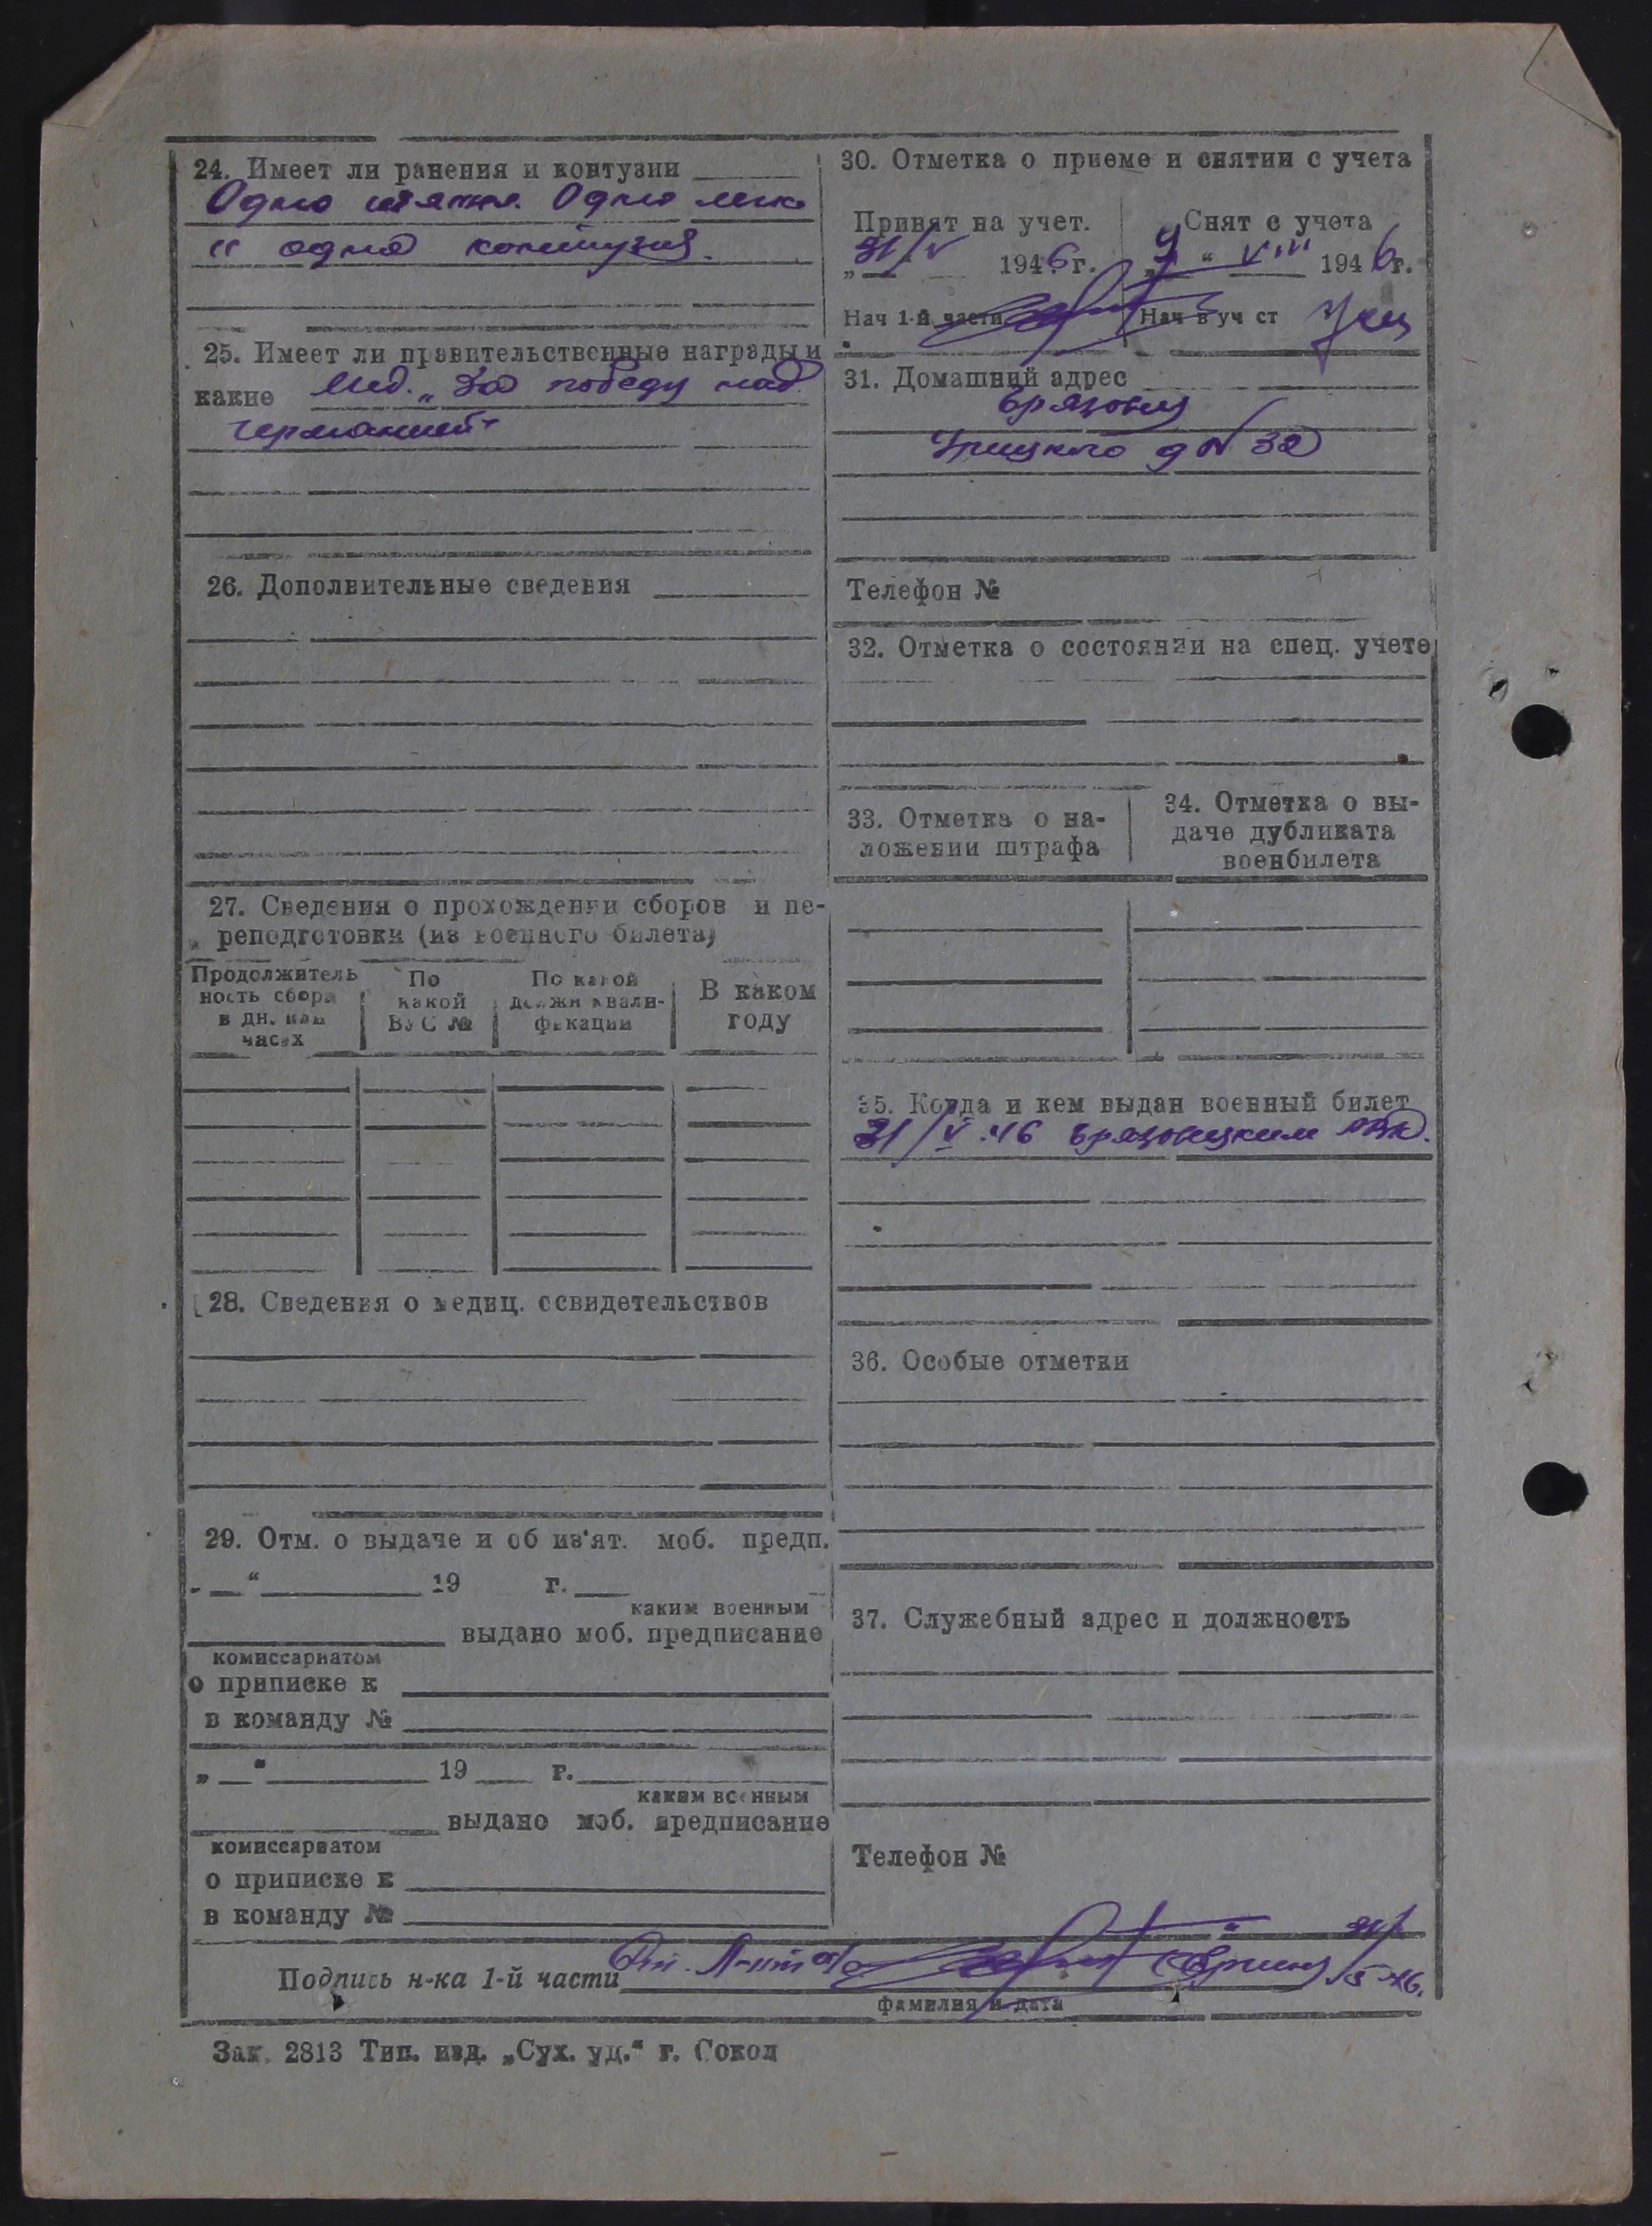 24. Имеет ли ранения и контузии
Одно тяжел. Одно легк
и одна контузия.
25. Имеет ли правительственные награды и
какие Мед. „За победу над
германией"
26. Дополнительные сведения
27. Сведения о прохождении сборов и пе-
реподготовки (из военного билета)
Продолжитель
ность сбора
в дн. или
часах
По
какой
ВУС №
По какой
должн квали-
фикации
В каком
году
28. Сведения о медиц. освидетельствов
29. Отм. о выдаче и об из'ят. моб. предп.
„ “ 19 г.
каким военным
выдано моб. предписание
комиссариатом
о приписке к
в команду №
„ “ 19 г.
каким военным
выдано моб. предписание
комиссариатом
о приписке к
в команду №
30. Отметка о приеме и снятии с учета
Принят на учет.
„31/V 1946 г.
Нач 1-й части
Снят с учета
„9 “ VIII 1946 г.
Нач в уч ст
31. Домашний адрес
Грязовец
Урицкого д № 32
Телефон №
32. Отметка о состоянии на спец. учете
33. Отметка о на-
ложении штрафа
34. Отметка о вы-
даче дубликата
военбилета
35. Когда и кем выдан военный билет
31/V.46 Грязовецким РВК.
36. Особые отметки
37. Служебный адрес и должность
Телефон №
Подпись н-ка 1-й части Ст. Л-нт а/с 31/5-46.
фамилия и дата
Зак. 2813 Тип. изд. „Сух. уд.“ г. Сокол